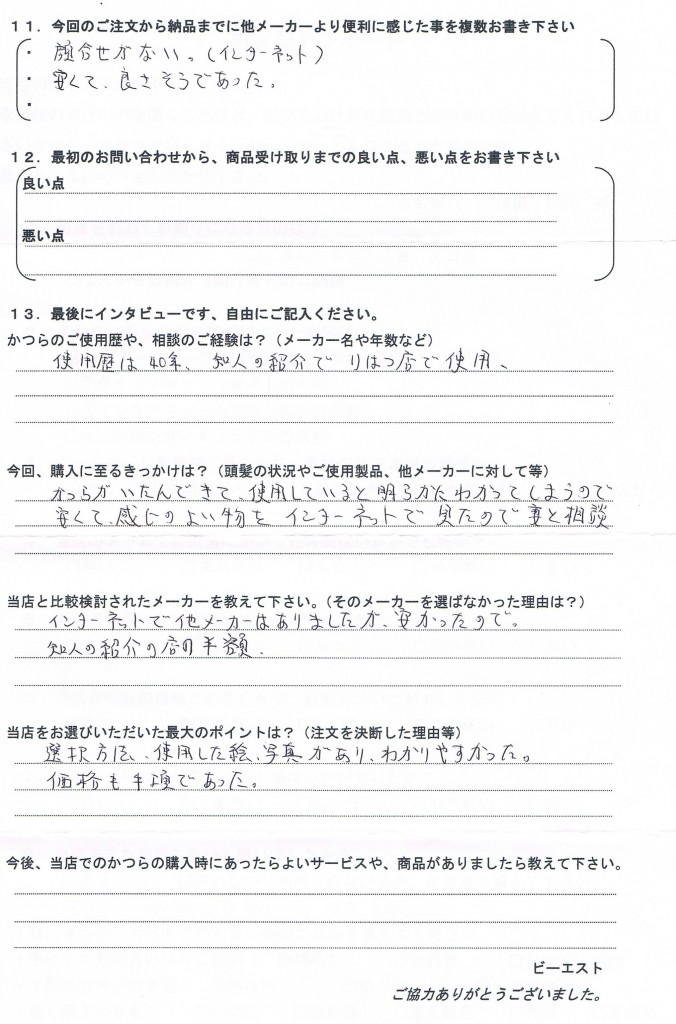 １１．今回のご注文から納品までに他メーカーより便利に感じた事を複数お書き下さい
・ 顔合せがない。（インターネット）
・ 安くて、良さそうであった。
・
１２．最初のお問い合わせから、商品受け取りまでの良い点、悪い点をお書き下さい
良い点
悪い点
１３．最後にインタビューです、自由にご記入ください。
かつらのご使用歴や、相談のご経験は？（メーカー名や年数など）
使用歴は40年、知人の紹介でりはつ店で使用、
今回、購入に至るきっかけは？（頭髪の状況やご使用製品、他メーカーに対して等）
かつらがいたんできて、使用していると明らかにわかってしまうので
安くて、感じのよい物をインターネットで見たので妻と相談
当店と比較検討されたメーカーを教えて下さい。（そのメーカーを選ばなかった理由は？）
インターネットで他メーカーはありましたが、安かったので。
知人の紹介の店の半額.
当店をお選びいただいた最大のポイントは？（注文を決断した理由等）
選択方法、使用した絵、写真があり、わかりやすかった。
価格も手頃であった。
今後、当店でのかつらの購入時にあったらよいサービスや、商品がありましたら教えて下さい。
ビーエスト
ご協力ありがとうございました。